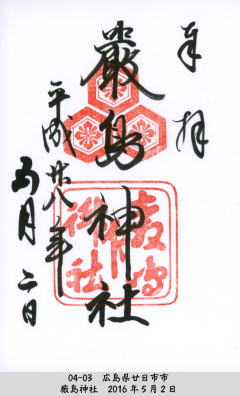 奉拝
厳島神社
平成廿八年
五月二日
厳島神社
04-03 広島県廿日市市
厳島神社 2016年5月2日